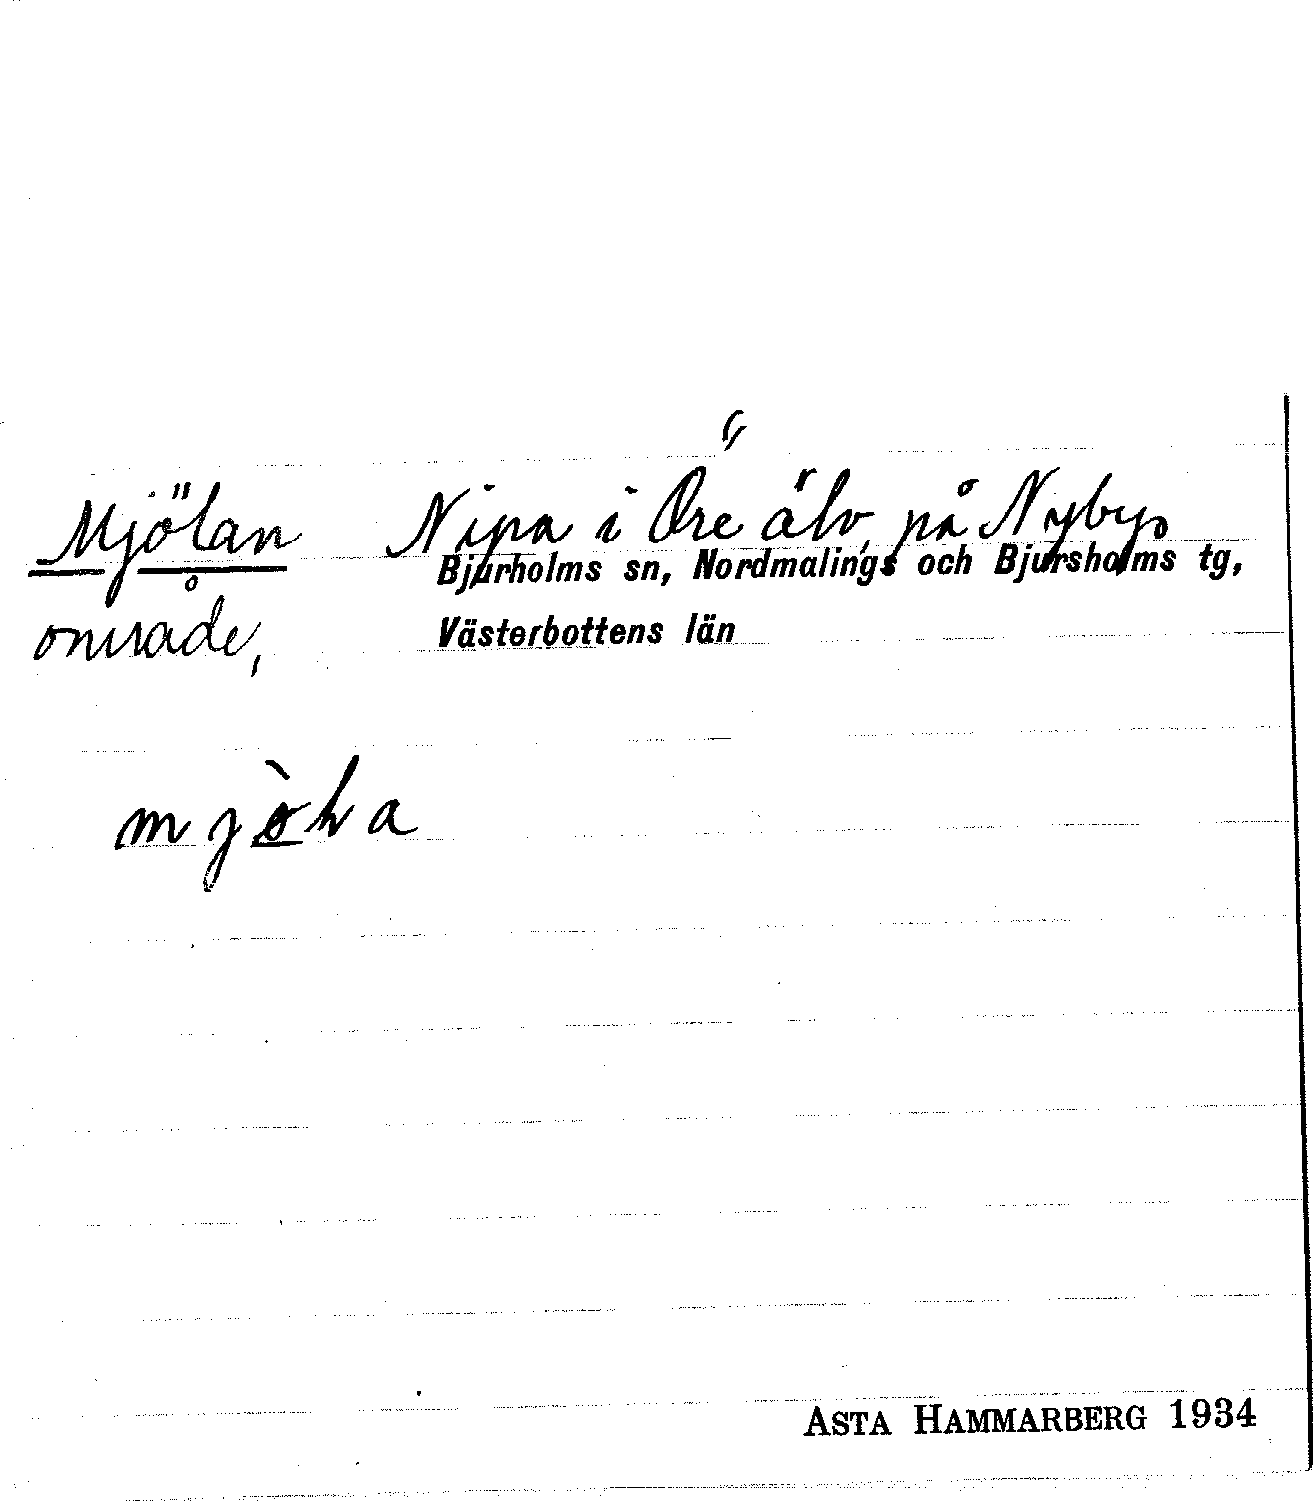 Mjölan Nipa i Öre älv, på Nybys
Bjurholms sn, Nordmalings och Bjursholms tg,
område, Västerbottens län
ASTA HAMMARBERG 1934